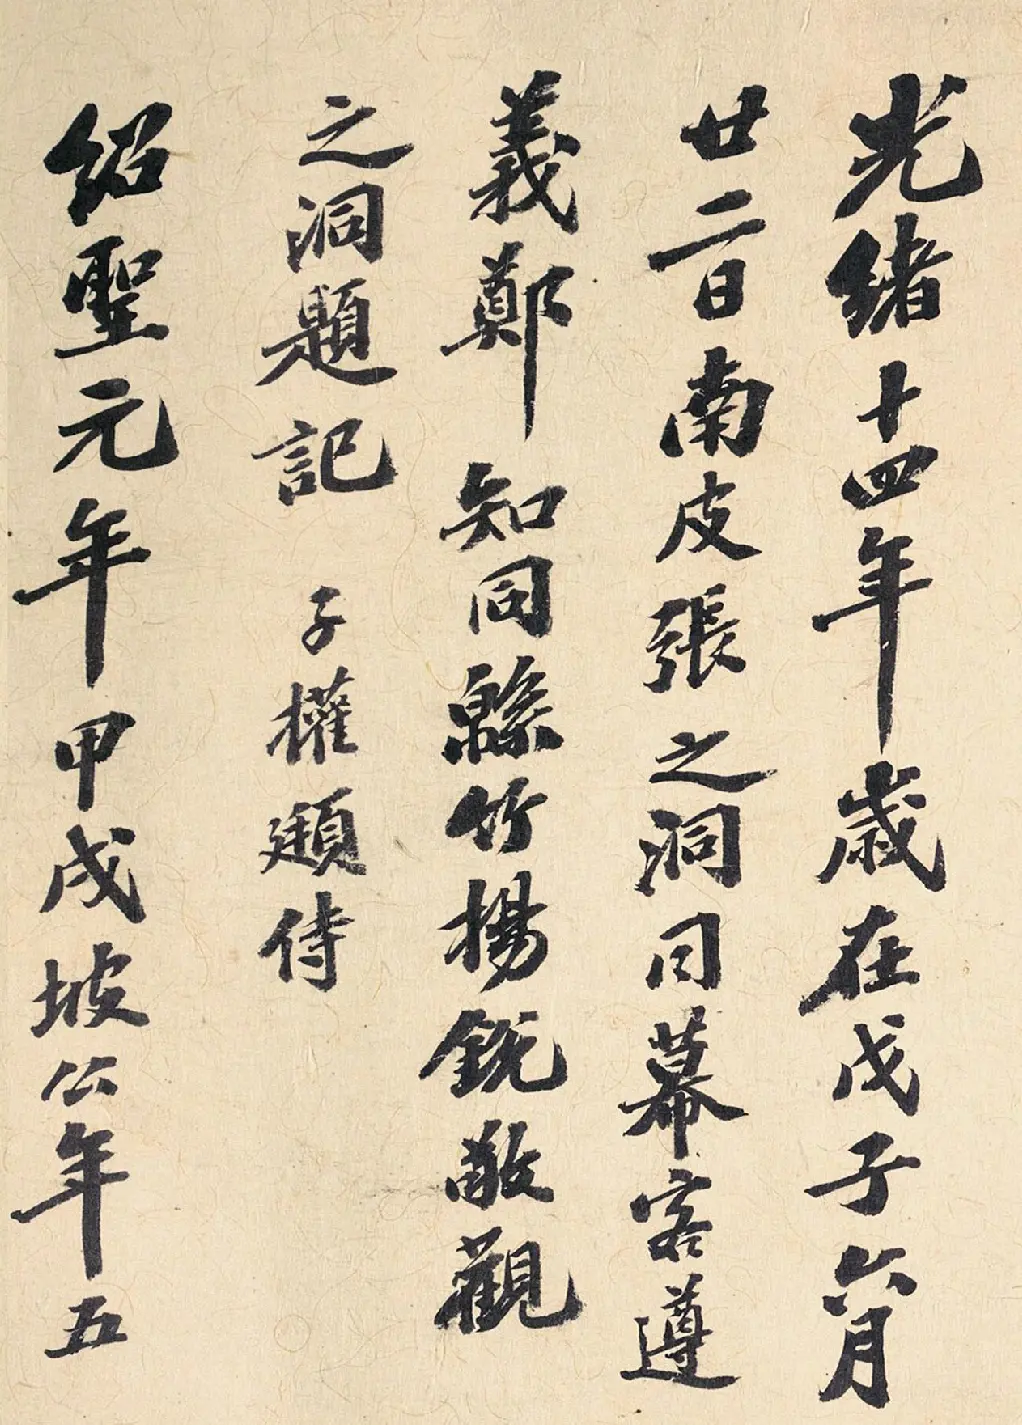 光緒十四年歲在戊子六月
廿二日南皮張之洞同幕客遵
義鄭知同緜竹楊銳敬觀
之洞題記 子權頲侍
紹聖元年甲戌坡公年五